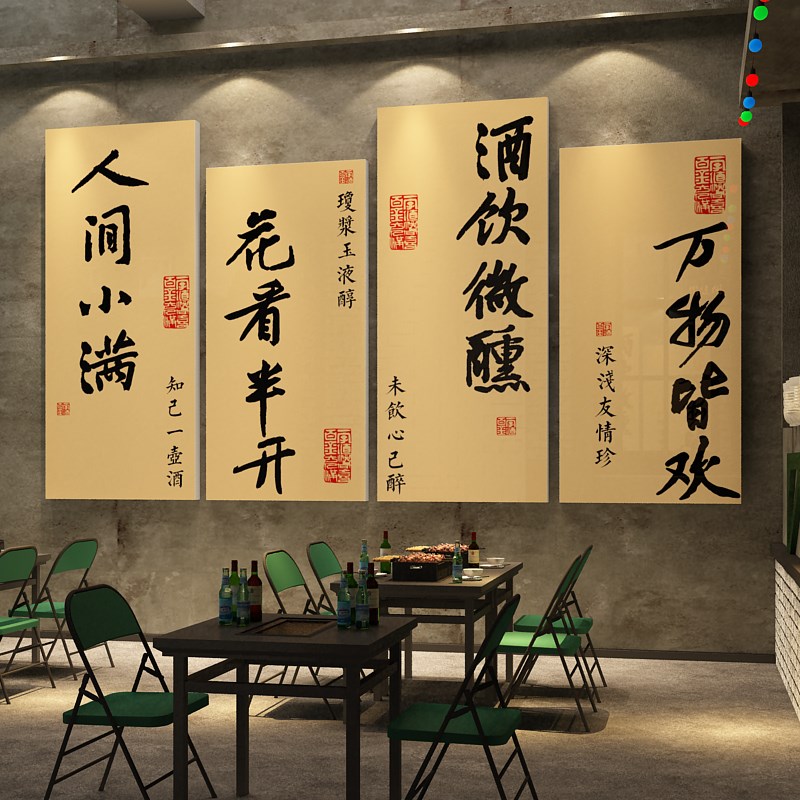 人间小满
知己一壺酒
花看半开
瓊漿玉液醇
酒饮微醺
未飲心已醉
万物皆欢
深淺友情珍